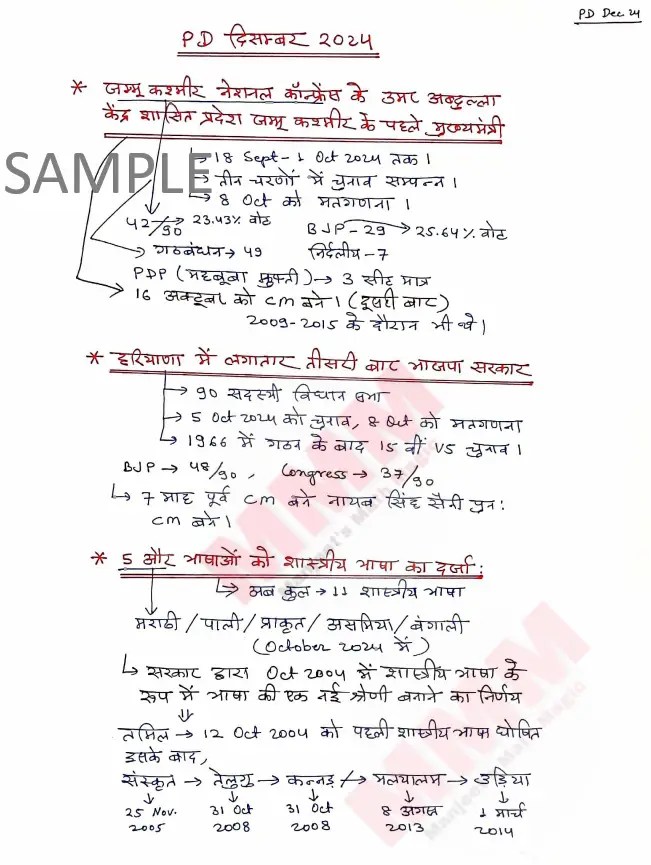 PD Dec 24
PD दिसम्बर 2024
* जम्मू कश्मीर नेशनल कॉन्फ्रेंस के उमर अब्दुल्ला
केंद्र शासित प्रदेश जम्मू कश्मीर के पहले मुख्यमंत्री
→ 18 Sept - 1 Oct 2024 तक।
SAMPLE
→ तीन चरणों में चुनाव सम्पन्न।
→ 8 Oct को मतगणना।
42/90 → 23.43% वोट BJP - 29 → 25.64% वोट
→ गठबंधन → 49 निर्दलीय - 7
PDP (महबूबा मुफ्ती) → 3 सीट मात्र
→ 16 अक्टूबर को CM बने। (दूसरी बार)
2009-2015 के दौरान भी थे।
* हरियाणा में लगातार तीसरी बार भाजपा सरकार
→ 90 सदस्यी विधान सभा
→ 5 Oct 2024 को चुनाव, 8 Oct को मतगणना
→ 1966 में गठन के बाद 15 वीं VS चुनाव।
BJP → 48/90, Congress → 37/90
↳ 7 माह पूर्व CM बने नायब सिंह सैनी पुन:
CM बने।
* 5 और भाषाओं को शास्त्रीय भाषा का दर्जा:
→ अब कुल → 11 शास्त्रीय भाषा
मराठी / पाली / प्राकृत / असमिया / बंगाली
(October 2024 में)
↳ सरकार द्वारा Oct 2004 में शास्त्रीय भाषा के
रूप में भाषा की एक नई श्रेणी बनाने का निर्णय
⇓
तमिल → 12 Oct 2004 को पहली शास्त्रीय भाषा घोषित
इसके बाद,
संस्कृत → तेलुगु → कन्नड़ → मलयालम → उड़िया
25 Nov. 2005 31 Oct 2008 31 Oct 2008 8 अगस्त 2013 1 मार्च 2014
MMM
Manjeet's Magic
MMM
Manjeet's Magic